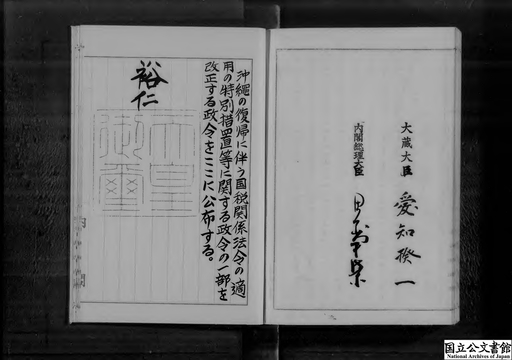 沖縄の復帰に伴う国税関係法令の適
用の特別措置等に関する政令の一部を
改正する政令をここに公布する。
裕仁
天皇
御璽
内閣
大蔵大臣 愛知揆一
内閣総理大臣 田中角榮
国立公文書館
National Archives of Japan